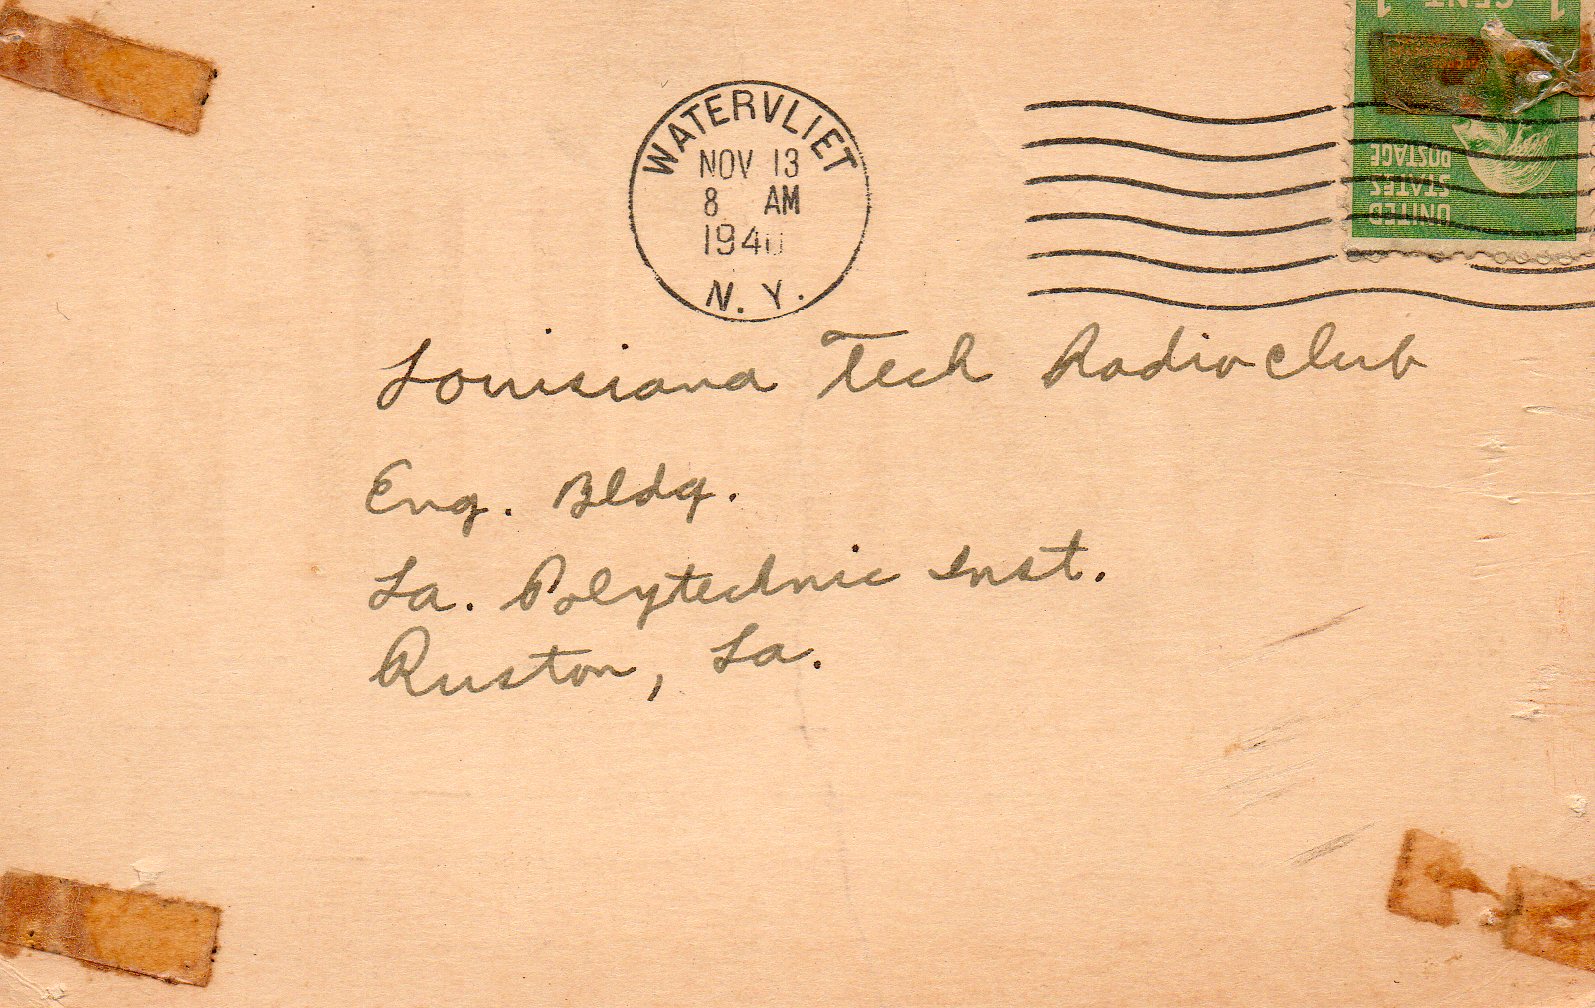 WATERVLIET
NOV 13
8 AM
1940
N. Y.
1 CENT 1
UNITED
STATES
POSTAGE
Louisiana Tech Radio Club
Eng. Bldg.
La. Polytechnic Inst.
Ruston, La.